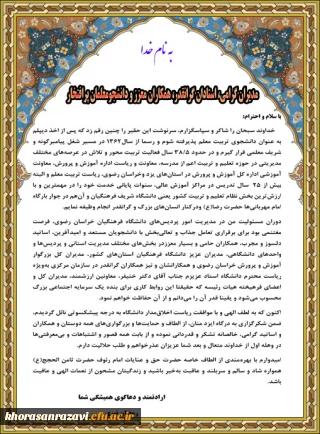 به نام خدا
مدیران گرامی، استادان گرانقدر، همکاران معزز و دانشجومعلمان پرافتخار
با سلام و احترام؛
خداوند سبحان را شاکر و سپاسگزارم، سرنوشت این حقیر را چنین رقم زد که پس از اخذ دیپلم
به عنوان دانشجوی تربیت معلم پذیرفته شوم و رسما از سال ۱۳۶۲ در مسیر شغل پیامبرگونه و
شریف معلمی قرار گیرم و در حدود ۳۸/۵ سال فعالیت تربیت محور و تلاش در عرصه‌های مختلف
مدیریتی در حوزه تعلیم و تربیت اعم از مدرسه، معاونت و ریاست اداره آموزش و پرورش، معاونت
آموزشی اداره کل آموزش و پرورش در استان‌های یزد و خراسان رضوی، ریاست تربیت معلم و البته
بیش از ۲۵ سال تدریس در مراکز آموزش عالی، سنوات پایانی خدمت خود را در مهمترین و با
ارزش‌ترین بخش نظام تعلیم و تربیت کشور یعنی دانشگاه شریف فرهنگیان و آن‌هم در جوار بارگاه
امام مهربانی‌ها حضرت رضا(ع) و در کنار انسان‌های بزرگ و گرانقدر انجام وظیفه نمایم.
دوران مسئولیت من در مدیریت امور پردیس‌های دانشگاه فرهنگیان خراسان رضوی، فرصت
مغتنمی بود برای برقراری تعامل جذاب و تعالی‌بخش با دانشجویان مستعد و امیدآفرین، اساتید
دلسوز و مجرب، همکاران حامی و بسیار معزز در بخش‌های مختلف مدیریت استانی و پردیس‌ها و
واحدهای دانشگاهی، مدیران عزیز دانشگاه فرهنگیان استان‌های کشور، مدیران کل بزرگوار
آموزش و پرورش خراسان رضوی و همکارانشان و نیز همکاران گرانقدر در سازمان مرکزی به‌ویژه
ریاست محترم دانشگاه استاد عزیزم جناب آقای دکتر خنیفر، معاونین ارزشمند، مدیران کل و
اعضای فرهیخته هیات رئیسه که حقیقتا این روابط کاری برای بنده یک سرمایه اجتماعی بزرگ
محسوب می‌شود و یقینا قدر آن را می‌دانم و از آن حفاظت خواهم نمود.
اکنون که به لطف الهی و با موافقت ریاست اخلاق‌مدار دانشگاه به درجه پیشکسوتی نائل گردیدم،
ضمن شکرگزاری به درگاه ایزد منان، از الطاف و حمایت‌ها و بزرگواری‌های همه دوستان و همکاران
و اساتید گرامی، خالصانه تشکر و قدردانی نموده و از بابت همه قصور و اشتباهات و بی‌معرفتی‌ها
در وهله اول از خداوند متعال و بعد شما عزیزان عذرخواهم و طلب حلالیت دارم.
امیدوارم با بهره‌مندی از الطاف خاصه حضرت حق و عنایات امام رئوف حضرت ثامن الحجج(ع)
همواره شاد و سالم و سربلند و عاقبت به‌خیر باشید و زندگیتان مشحون از نعمات الهی و عافیت
باشد.
ارادتمند و دعاگوی همیشگی شما
khorasanrazavi.cfu.ac.ir